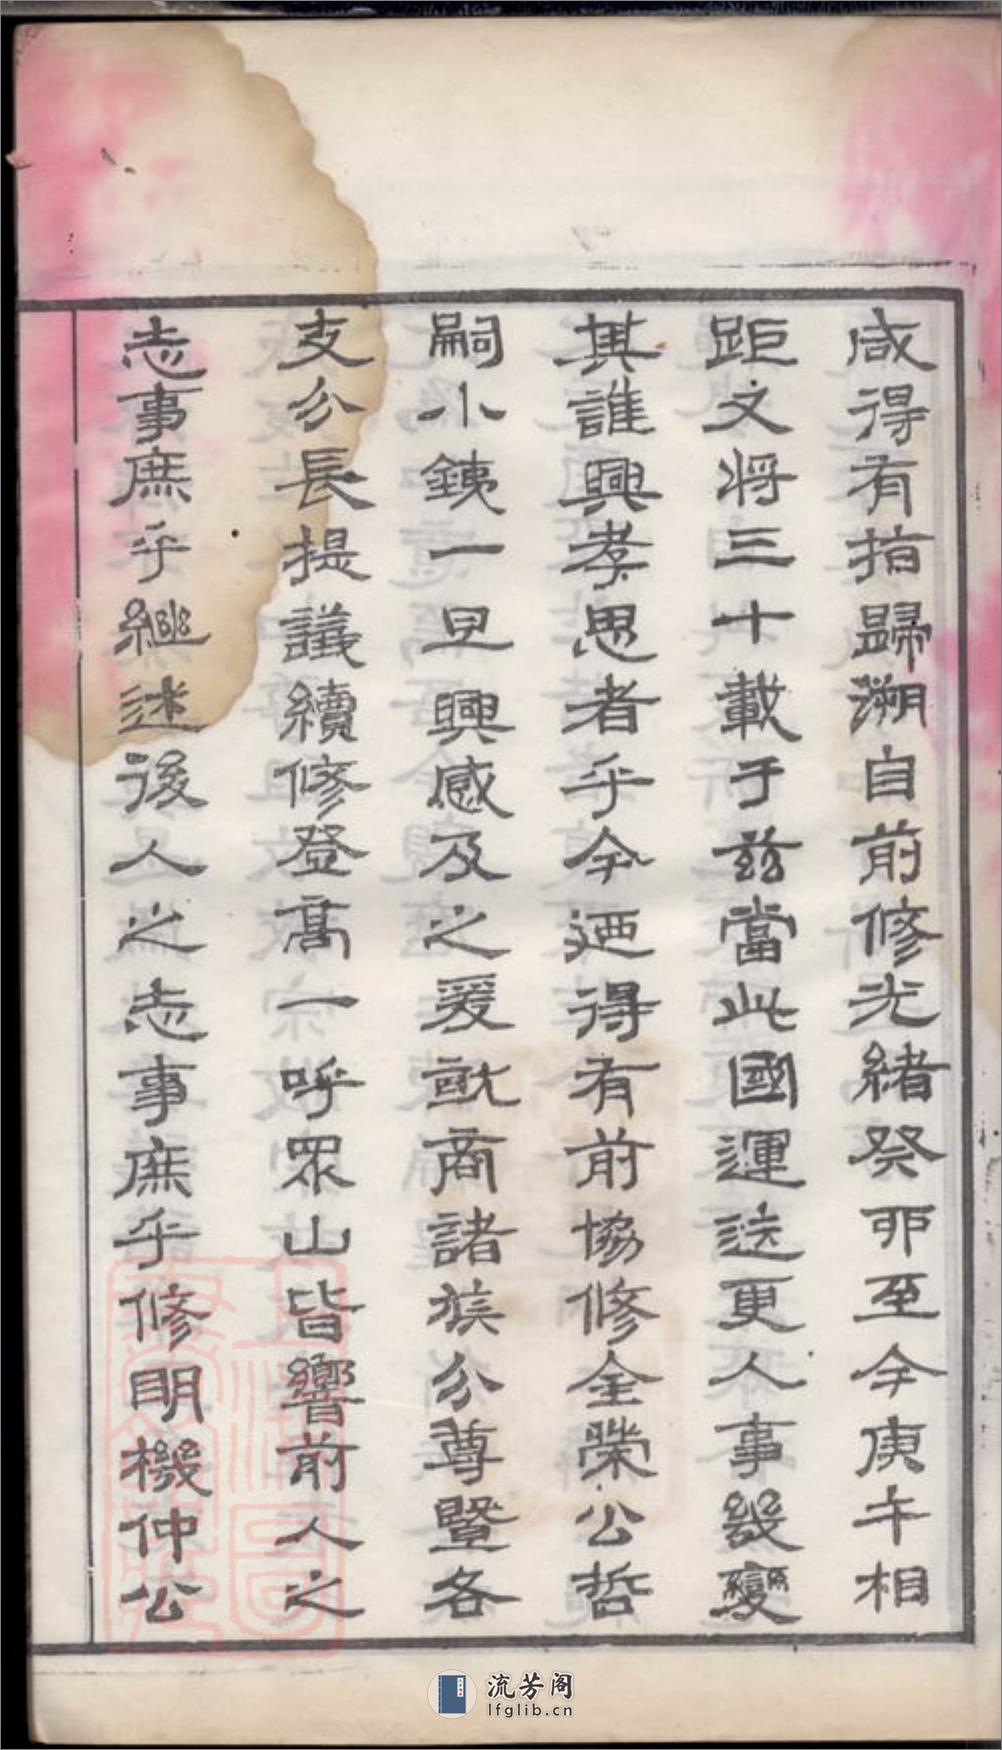 咸得有指歸溯自前修光緒癸卯至今庚午相
距又將三十載于兹當此國運迭更人事幾變
其誰興孝思者乎今迺得有前協修金榮公哲
嗣小銕一旦興感及之爰就商諸族公尊暨各
支公長提議續修登高一呼眾山皆響前人之
志事庶乎繼述後人之志事庶乎修明機仲公
流芳阁
lfglib.cn